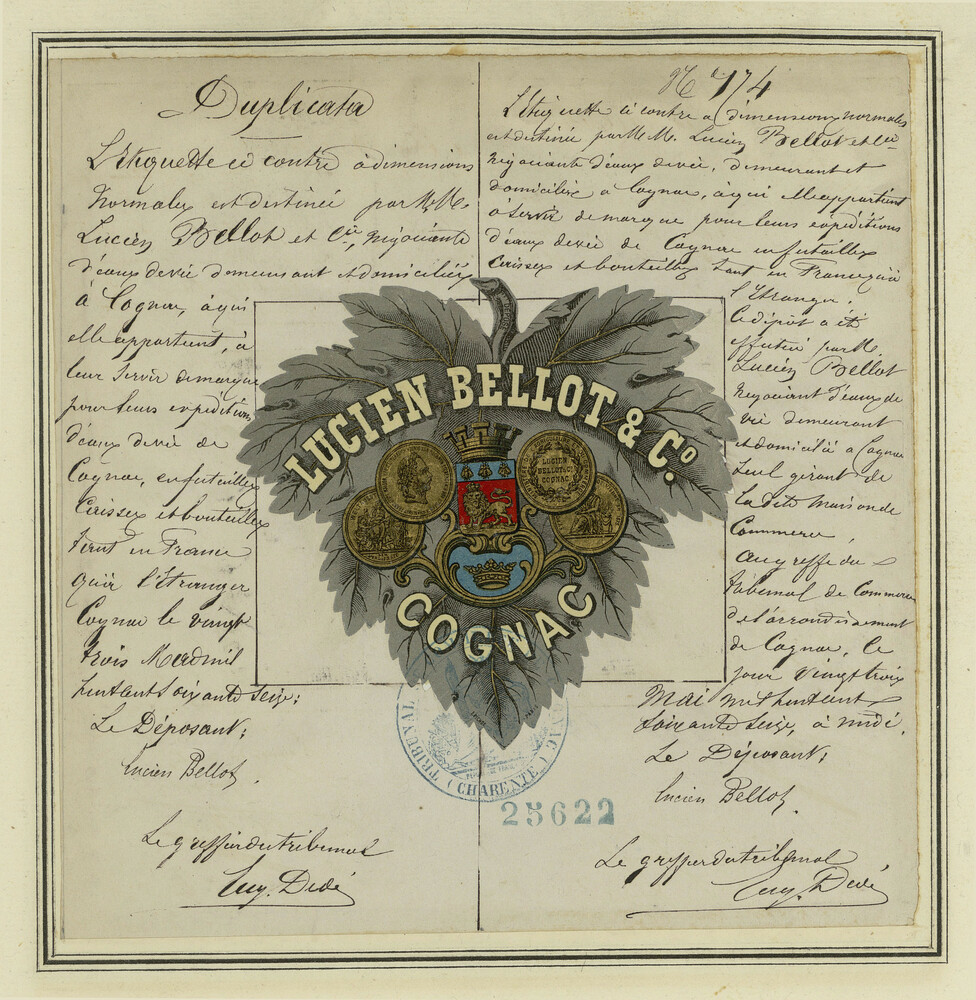 Duplicata
L'étiquette ci contre à dimensions
normales est destinée par M.M.
Lucien Bellot et Cie, négociants
d'eaux de vie demeurant et domiciliés
à Cognac, à qui
elle appartient, à
leur servir de marque
pour leurs expéditions
d'eaux de vie de
Cognac, en futailles
Caisses et bouteilles
tant en France
qu'à l'Etranger
Cognac le vingt
trois Mai mil
huit cent soixante seize;
Le Déposant;
Lucien Bellot.
Le greffier du tribunal
Eug. Dedé
No 174
L'étiquette ci contre à dimensions normales
est destinée par M.M. Lucien Bellot et Cie
négociants d'eaux de vie, demeurant et
domiciliés à Cognac, à qui elle appartient
à servir de marque pour leurs expéditions
d'eaux de vie de Cognac en futailles
Caisses et bouteilles tant en France qu'à
l'Etranger.
Ce dépôt a été
effectué par M.
Lucien Bellot
négociant d'eaux de
vie demeurant
et domicilié à Cognac
seul gérant de
la dite maison de
Commerce
au greffe du
tribunal de Commerce
de l'arrondissement
de Cognac, le
jour vingt trois
Mai mil huit cent
soixante seize, à midi.
Le Déposant;
Lucien Bellot.
Le greffier du tribunal
Eug. Dedé
LUCIEN BELLOT & Co.
LUCIEN
BELLOT & Co
COGNAC
COGNAC
TRIBUNAL
(CHARENTE)
25622